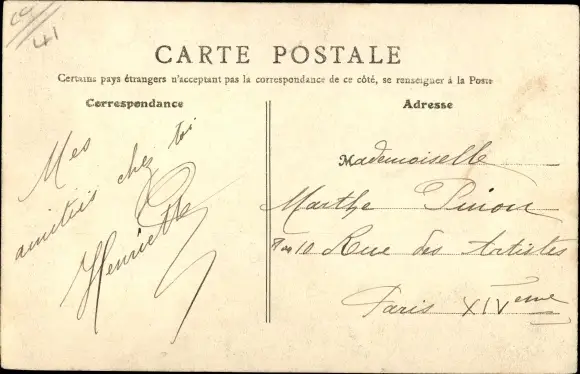 41
CARTE POSTALE
Certains pays étrangers n'acceptant pas la correspondance de ce côté, se renseigner à la Poste
Correspondance
Mes
amitiés chez toi
Henriette
Adresse
Mademoiselle
Marthe Pinon
10 Rue des Artistes
Paris XIVème